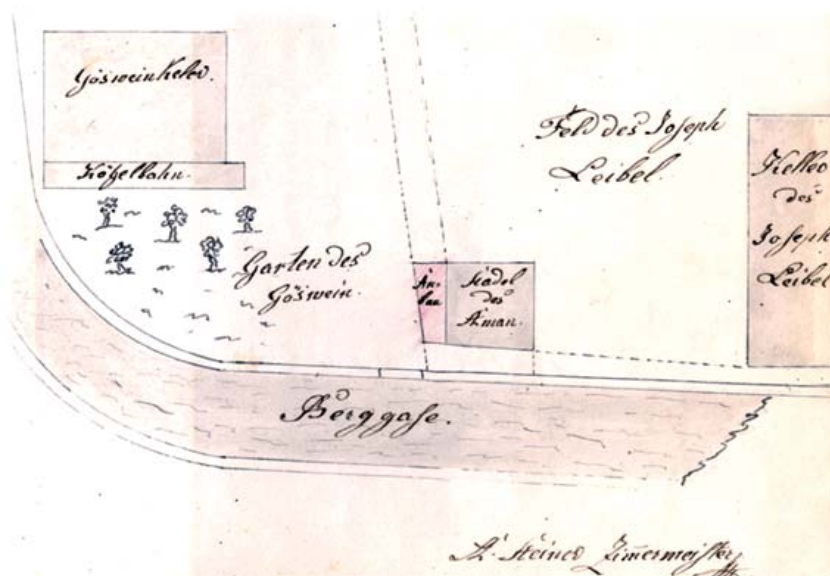 Gösweinkeler.
Kögelbahn.
Garten des
Göswein.
An-
bau
Stadel
des
Aman.
Feld des Joseph
Leibel.
Keller
des
Joseph
Leibel
Berggaße.
A. Steiner Zimermeister